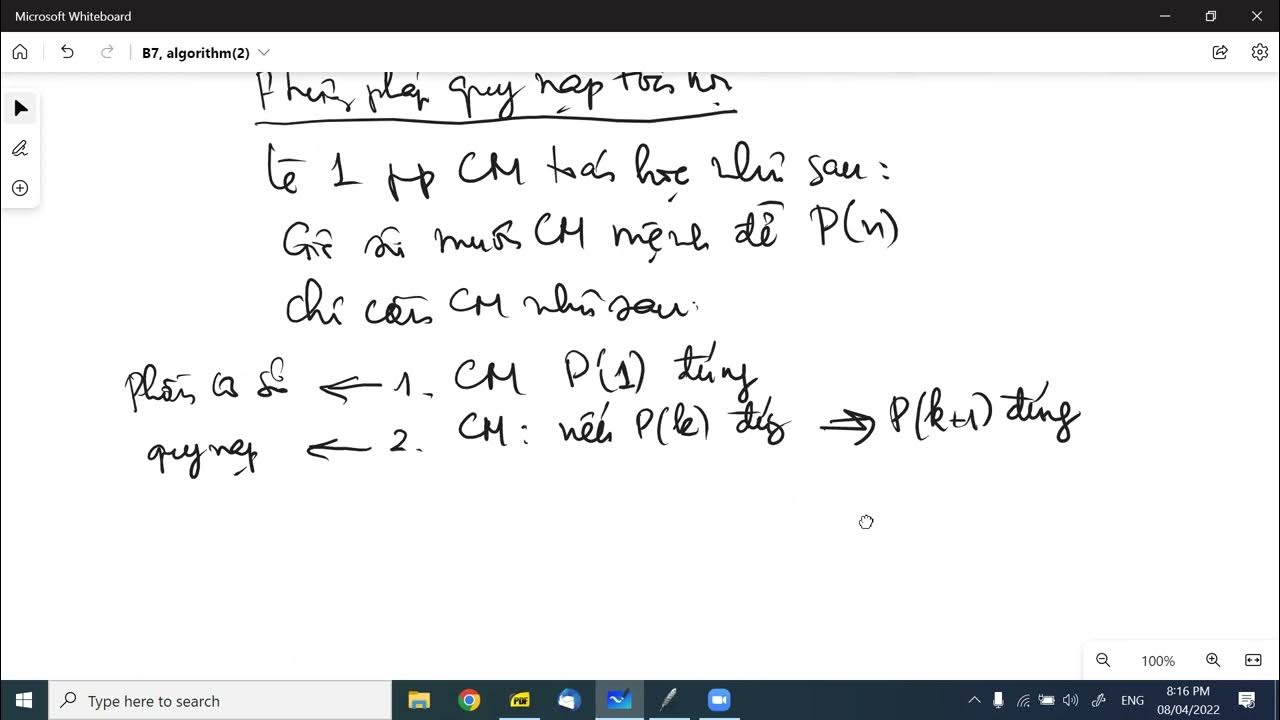 Microsoft Whiteboard
B7, algorithm(2)
Phương pháp quy nạp toán học
là 1 pp CM toán học như sau:
Giả sử muốn CM mệnh đề P(n)
chỉ cần CM như sau:
phần cơ sở ← 1. CM P(1) đúng
quy nạp ← 2. CM: nếu P(k) đúng ⇒ P(k+1) đúng
100%
Type here to search
PDF
ENG
8:16 PM
08/04/2022